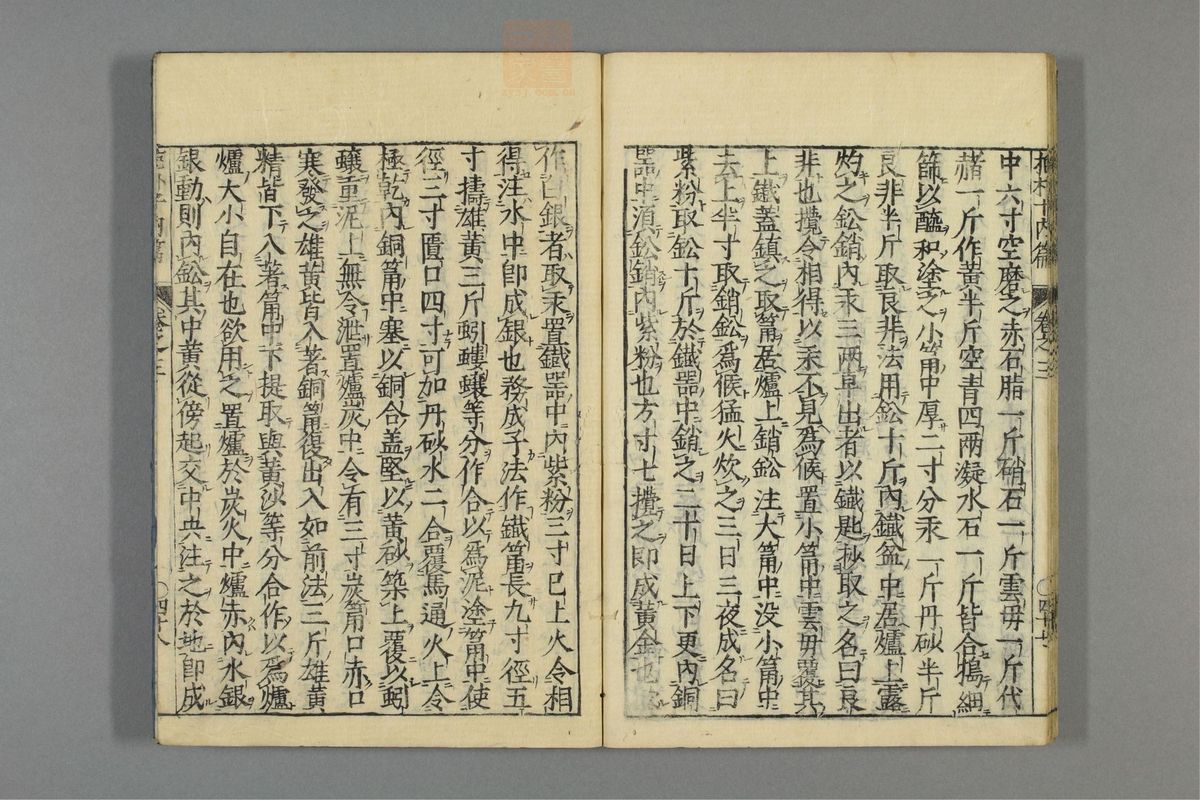 中六寸空磨之赤石脂一斤硝石一斤雲毋一斤代
赭一斤作黃半斤空青四兩凝水石一斤皆合搗細
篩以醯和塗之小筩中厚二寸分汞一斤丹砂半斤
良非半斤取良非法用鈆十斤內鐵盆中居爐上露
灼之鈆銷內汞三兩早出者以鐵匙抄取之名曰良
非也攪令相得以汞不見爲候置小筩中雲毋覆其
上鐵蓋鎮之取筩居爐上銷鈆注大筩中没小筩中
去上半寸取銷鈆爲候猛火炊之三日三夜成名曰
紫粉取鈆十斤於鐵噐中銷之二十日上下更內銅
噐中湏鈆銷內紫粉也方寸七攪之即成黃金也
抱朴子內篇 卷之三 ○四十七
作白銀者取汞置鐵噐中內紫粉三寸已上火令相
得注水中即成銀也務成子法作鐵筩長九寸徑五
寸擣雄黃三斤蚓螻蠰等分作合以爲泥塗筩中使
徑三寸匱口四寸可加丹砂水二合覆馬通火上令
極乾內銅筩中塞以銅合盖堅以黃砂築上覆以蚓
蠰重泥上無令泄置爐炭中令有三寸炭筩口赤口
寒發之雄黃皆入著銅筩復出入如前法三斤雄黃
精皆下入著筩中下提取與黃沙等分合作以爲爐
爐大小自在也欲用之置爐於炭火中爐赤內水銀
銀動則內鈆其中黃從傍起交中央注之於地即成
抱朴子內篇 卷之三 ○四十八